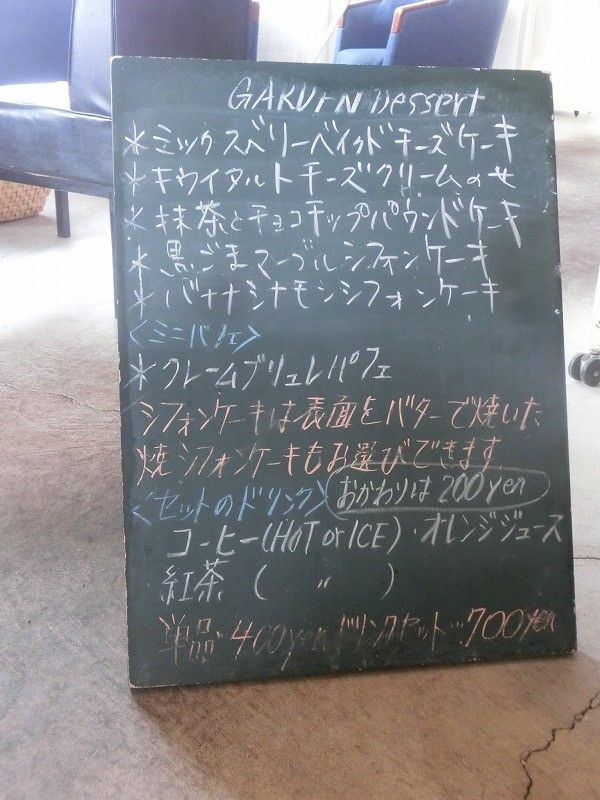 GAKUIN Dessert
＊ミックスベリーベイクドチーズケーキ
＊キウイタルトチーズクリームのせ
＊抹茶とチョコチップパウンドケーキ
＊黒ごまマーブルシフォンケーキ
＊バナナシナモンシフォンケーキ
<ミニパフェ>
＊クレームブリュレパフェ
シフォンケーキは表面をバターで焼いた
焼シフォンケーキもお選びできます
<セットのドリンク> おかわりは200yen
コーヒー(HOT or ICE)・オレンジジュース
紅茶 ( 〃 )
単品‥400yen ドリンクセット‥700yen